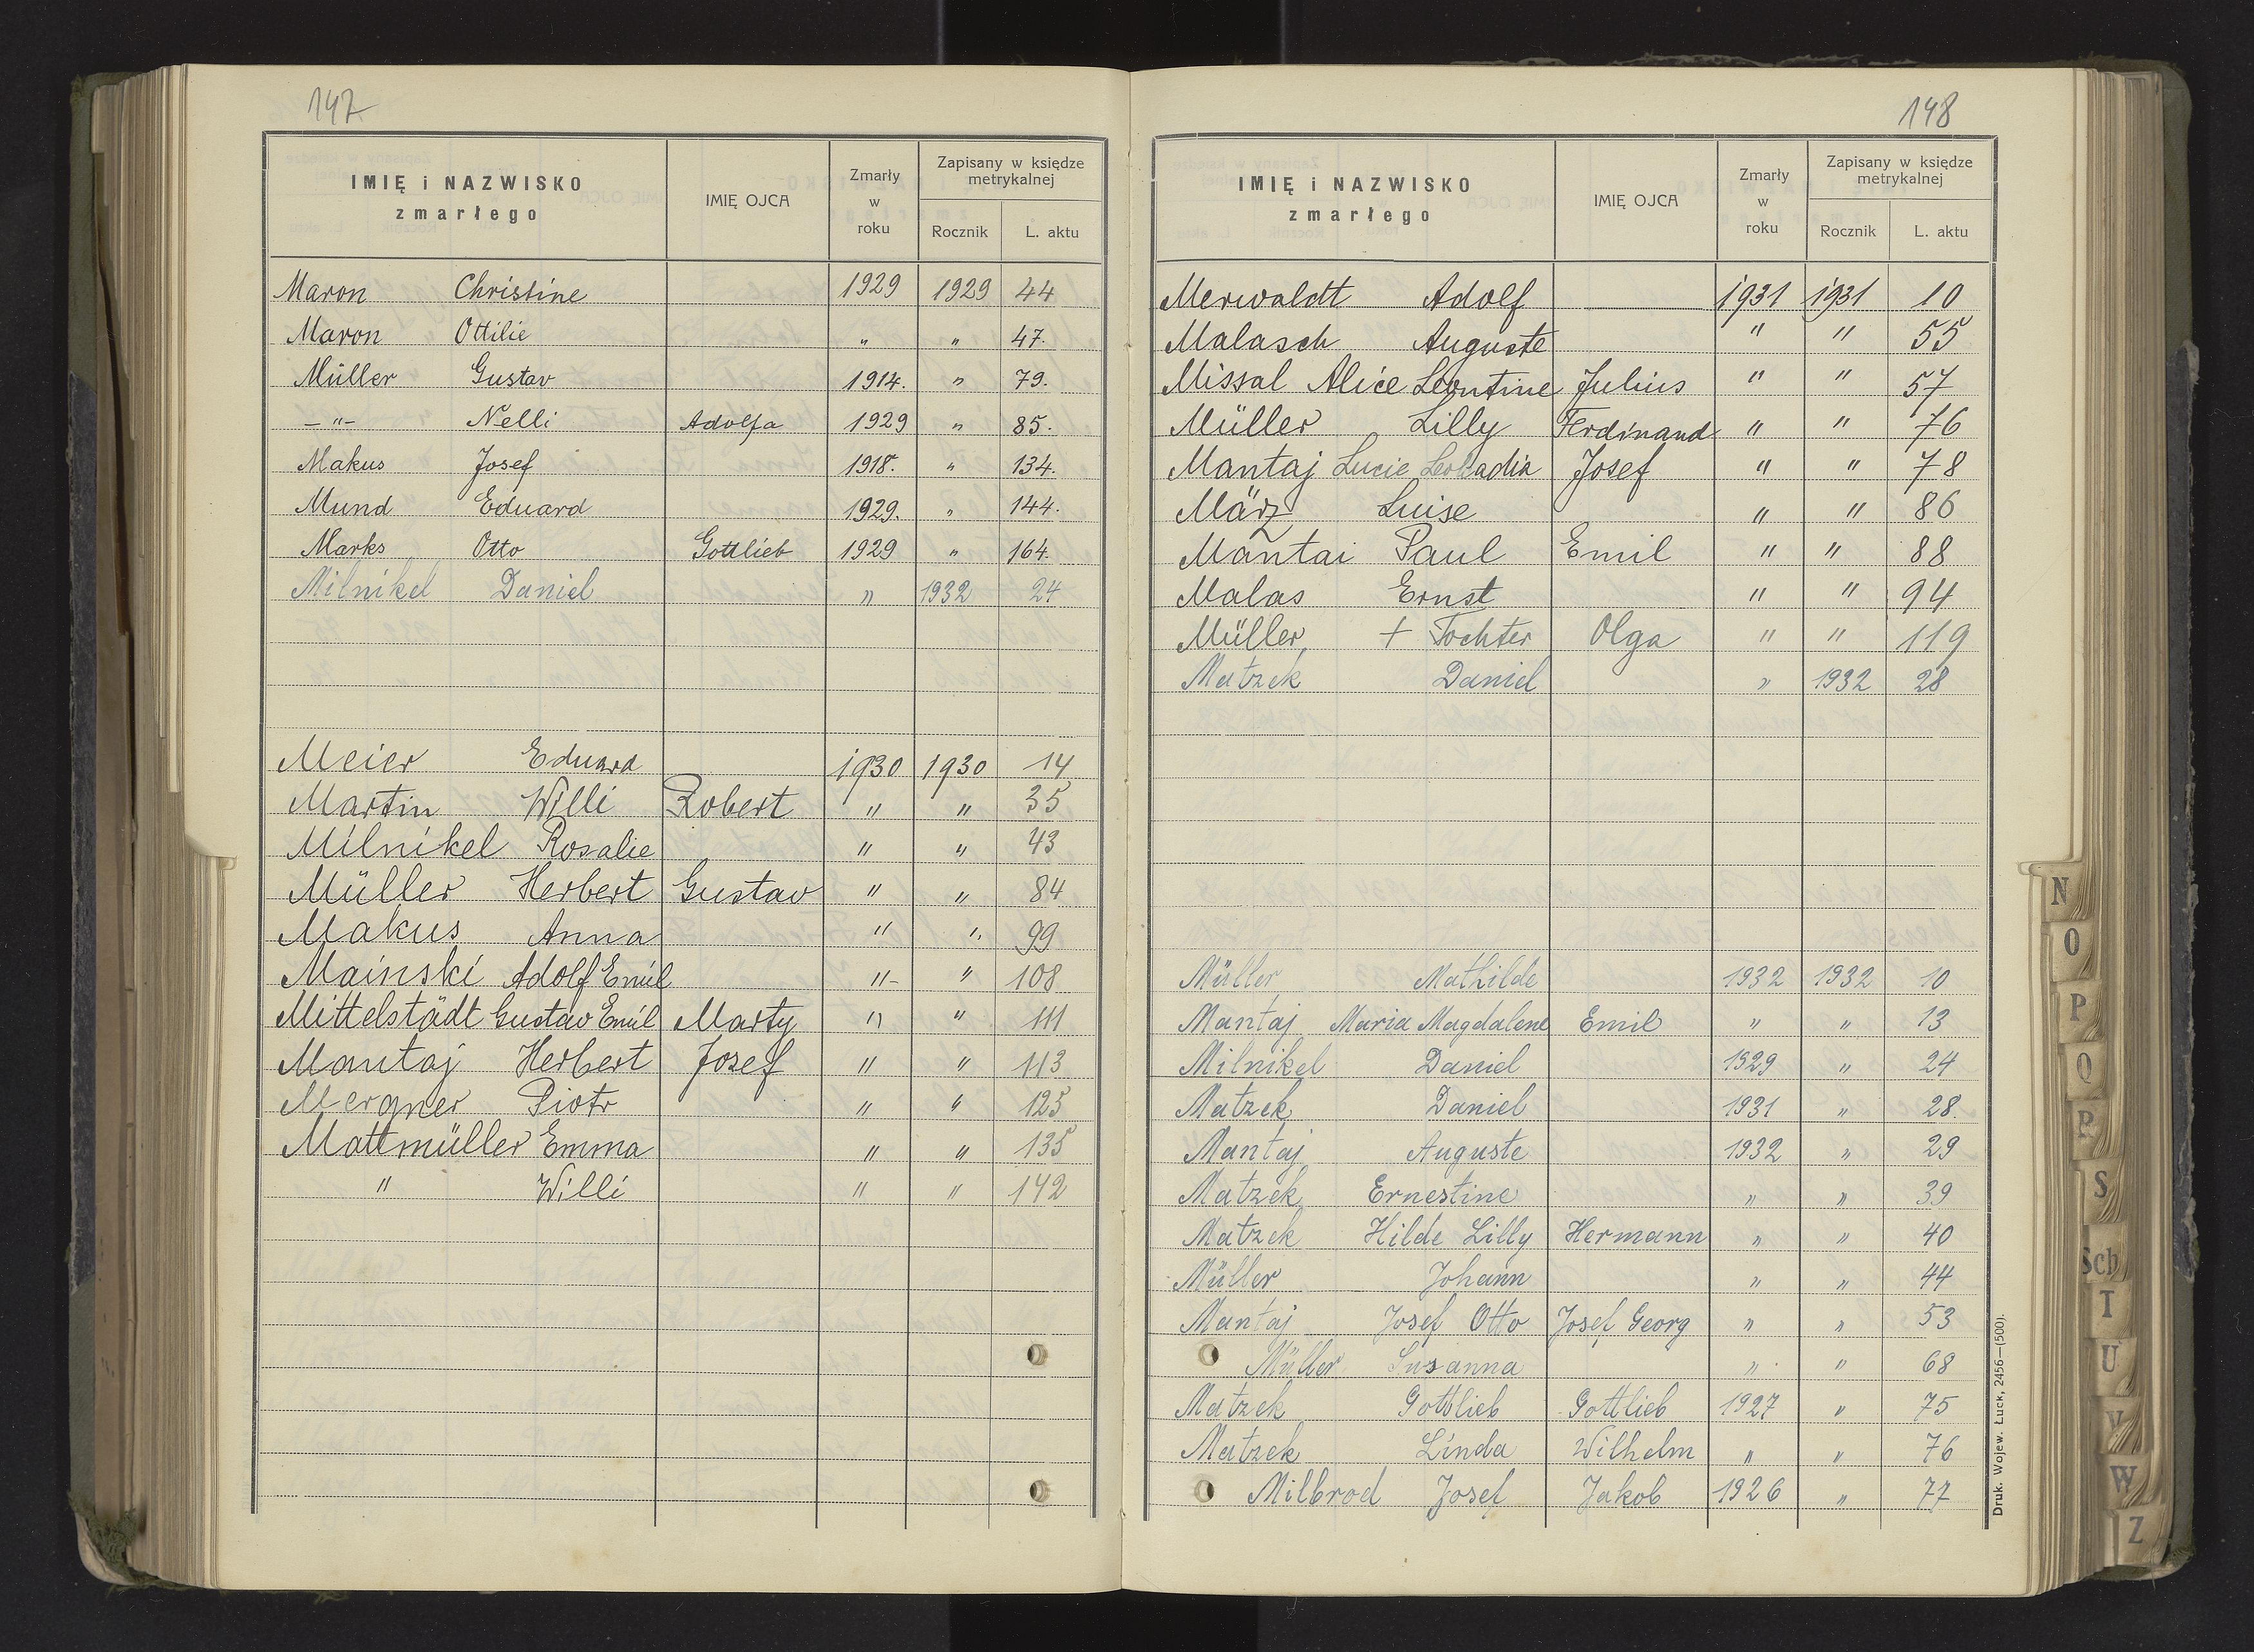 147
IMIĘ i NAZWISKO zmarłego IMIĘ OJCA Zmarły w roku Zapisany w księdze metrykalnej Rocznik L. aktu
Maron Christine 1929 1929 44
Maron Ottilie " " 47.
Müller Gustav 1914. " 79.
-"- Nelli Adolfa 1929 " 85.
Makus Josef 1918. " 134.
Mund Eduard 1929. " 144.
Marks Otto Gottlieb 1929 " 164.
Milnikel Daniel " 1932 24
Meier Eduard 1930 1930 14
Martin Willi Robert " " 35
Milnikel Rosalie " " 43
Müller Herbert Gustav " " 84
Makus Anna " " 99
Mainski Adolf Emil "- " 108
Mittelstädt Gustav Emil Marty " " 111
Mantaj Herbert Josef " " 113
Mergner Piotr " " 125
Mattmüller Emma " " 135
" Willi " " 142
148
IMIĘ i NAZWISKO zmarłego IMIĘ OJCA Zmarły w roku Zapisany w księdze metrykalnej Rocznik L. aktu
Merwaldt Adolf 1931 1931 10
Malasch Auguste " " 55
Missal Alice Leontine Julius " " 57
Müller Lilly Ferdinand " " 76
Mantaj Lucie Leokadia Josef " " 78
März Luise " " 86
Mantai Paul Emil " " 88
Malas Ernst " " 94
Müller, + Tochter Olga " " 119
Matzek Daniel " 1932 28
Müller Mathilde 1932 1932 10
Mantaj Maria Magdalene Emil " " 13
Milnikel Daniel 1929 " 24
Matzek Daniel 1931 " 28.
Mantaj Auguste 1932 " 29
Matzek Ernestine " " 39
Matzek Hilde Lilly Hermann " " 40
Müller Johann " " 44
Mantaj Josef Otto Josef Georg " " 53
Müller Susanna " " 68
Matzek Gottlieb Gottlieb 1927 " 75
Matzek Linda Wilhelm " " 76
Milbrod Josef Jakob 1926 " 77
Druk. Wojew. Łuck, 2456—(500).
N
O
P
Q
R
S
Sch
T
U
V
W
Z